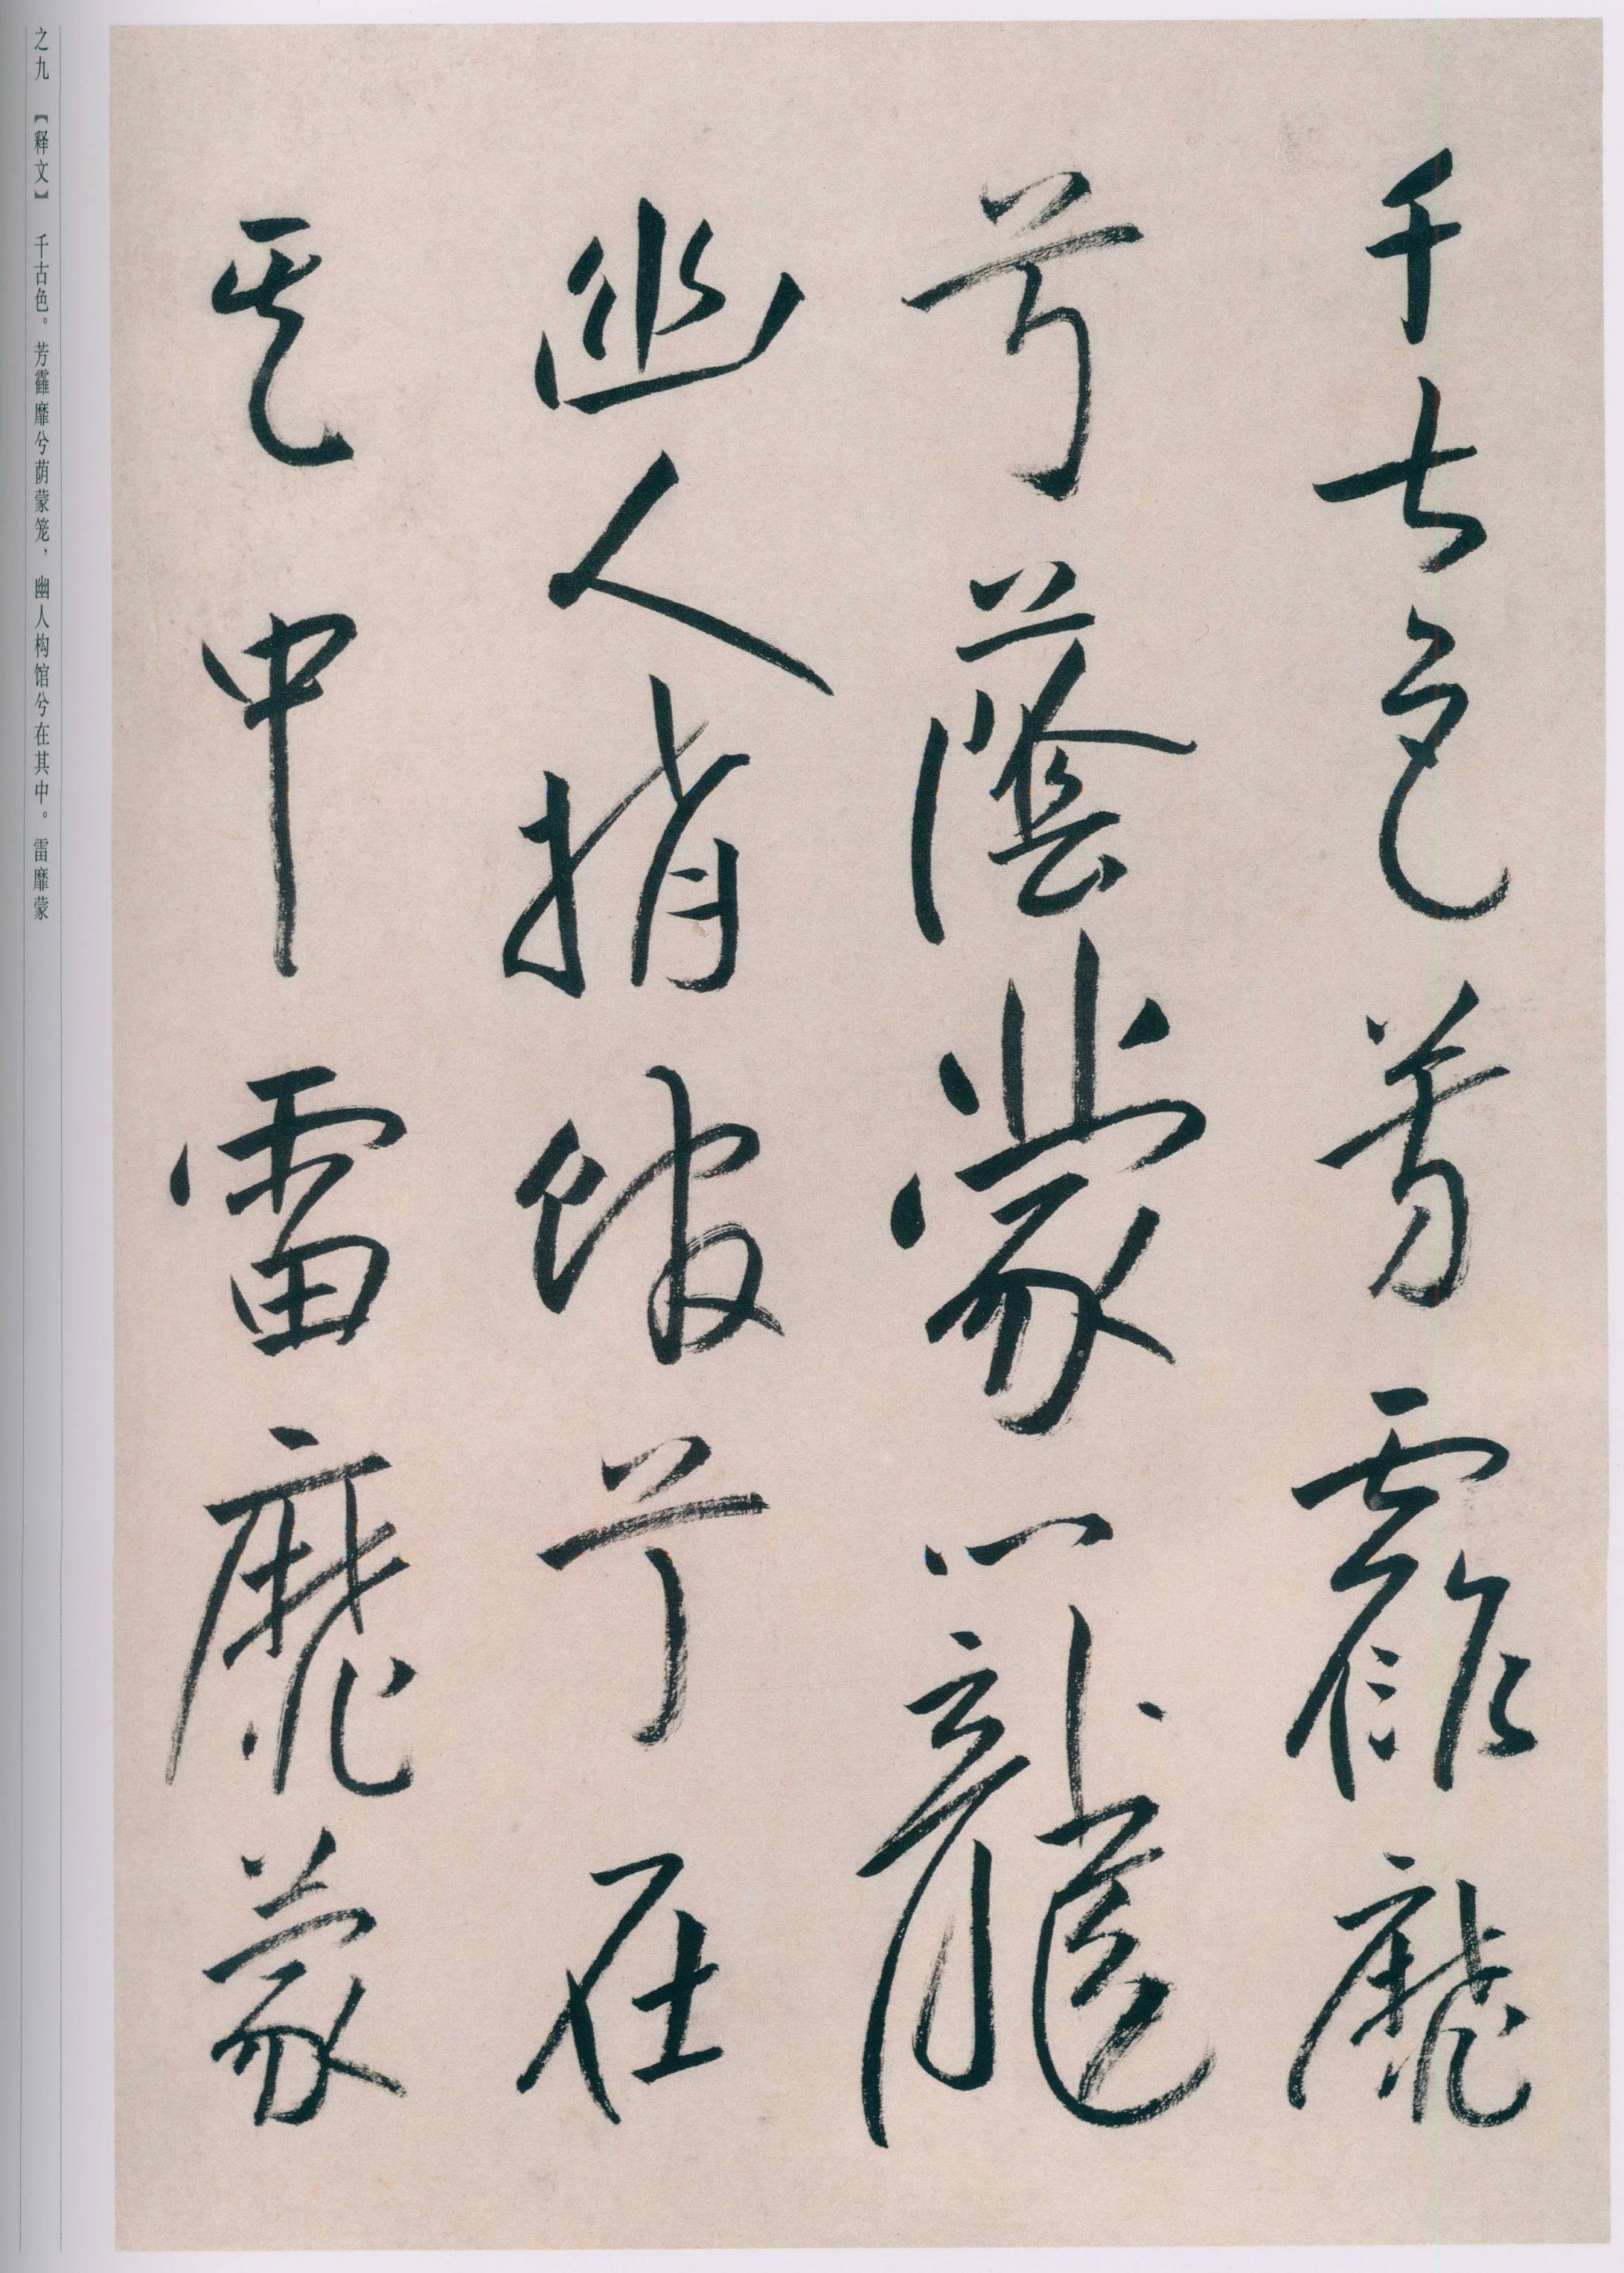 千古色芳靃靡
兮蔭蒙籠
幽人構館兮在
其中雷靡蒙
之九 【释文】 千古色。芳靃靡兮荫蒙笼，幽人构馆兮在其中。雷靡蒙